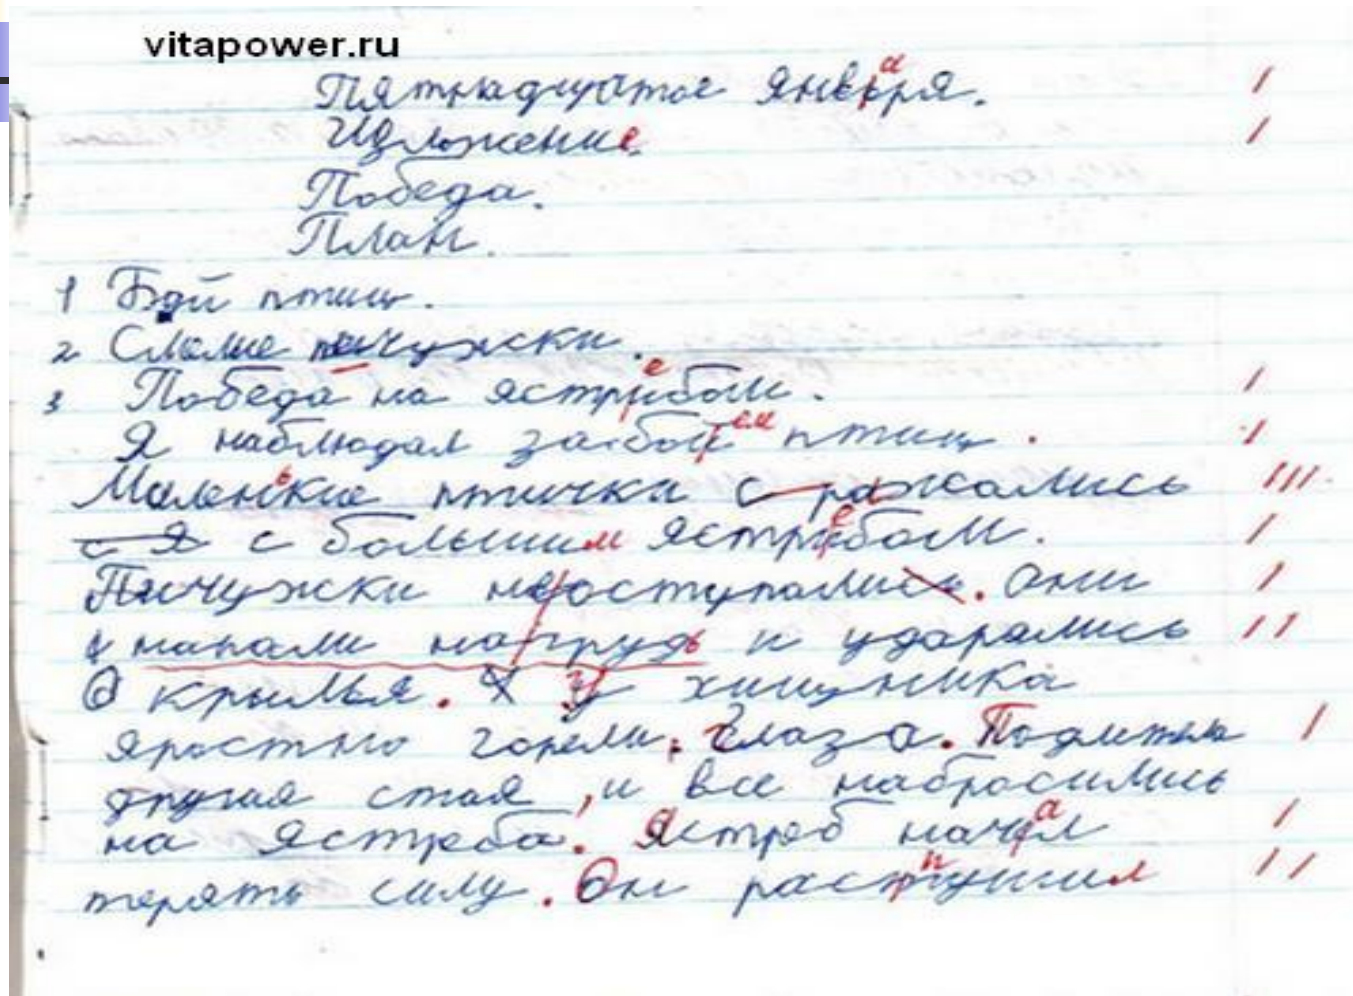 vitapower.ru
Пятнадцатое января.
Изложение.
Победа.
План.
1 Бой птиц.
2 Смелые пичужки.
3 Победа на ястребом.
Я наблюдал за боем птиц.
Маленькие птички сражались
с большим ястребом.
Пичужки не оступали. Они
напали на грудь и ударялись
о крылья. У хищника
яростно горели глаза. Подлител
другая стая, и все набросились
на ястреба. Ястреб начал
терять силу. Он распушил